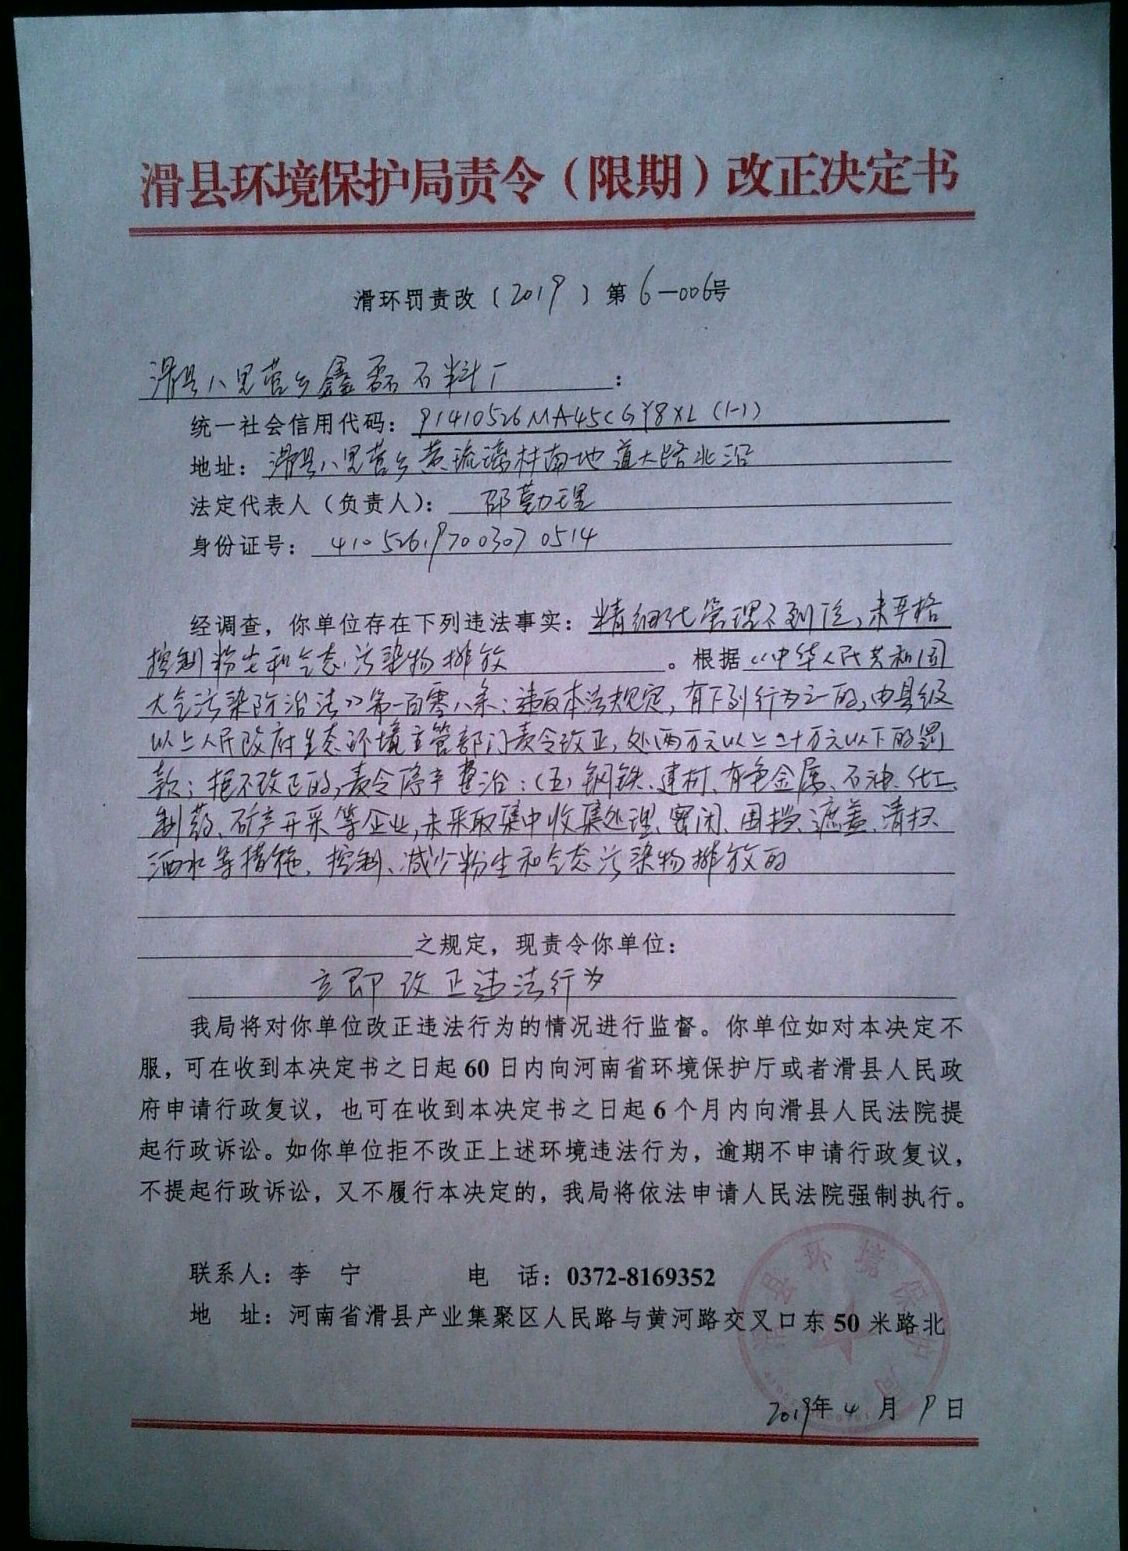 滑县环境保护局责令（限期）改正决定书
滑环罚责改〔2019〕第6-006号
滑县八里营乡鑫磊石料厂：
统一社会信用代码：91410526MA45CGY8XL (1-1)
地址：滑县八里营乡黄流滩村南地道大路北沿
法定代表人（负责人）：邵勤理
身份证号：410526197003070514
经调查，你单位存在下列违法事实：精细化管理不到位，未严格
控制粉尘和气态污染物排放。根据《中华人民共和国
大气污染防治法》第一百零八条：违反本法规定，有下列行为之一的，由县级
以上人民政府生态环境主管部门责令改正，处两万元以上二十万元以下的罚
款；拒不改正的，责令停产整治：（五）钢铁、建材、有色金属、石油、化工、
制药、矿产开采等企业，未采取集中收集处理、密闭、围挡、遮盖、清扫、
洒水等措施，控制、减少粉尘和气态污染物排放的
之规定，现责令你单位：
立即改正违法行为
我局将对你单位改正违法行为的情况进行监督。你单位如对本决定不
服，可在收到本决定书之日起60日内向河南省环境保护厅或者滑县人民政
府申请行政复议，也可在收到本决定书之日起6个月内向滑县人民法院提
起行政诉讼。如你单位拒不改正上述环境违法行为，逾期不申请行政复议，
不提起行政诉讼，又不履行本决定的，我局将依法申请人民法院强制执行。
联系人：李 宁 电 话：0372-8169352
地 址：河南省滑县产业集聚区人民路与黄河路交叉口东50米路北
滑县环境保护局
2019年4月9日